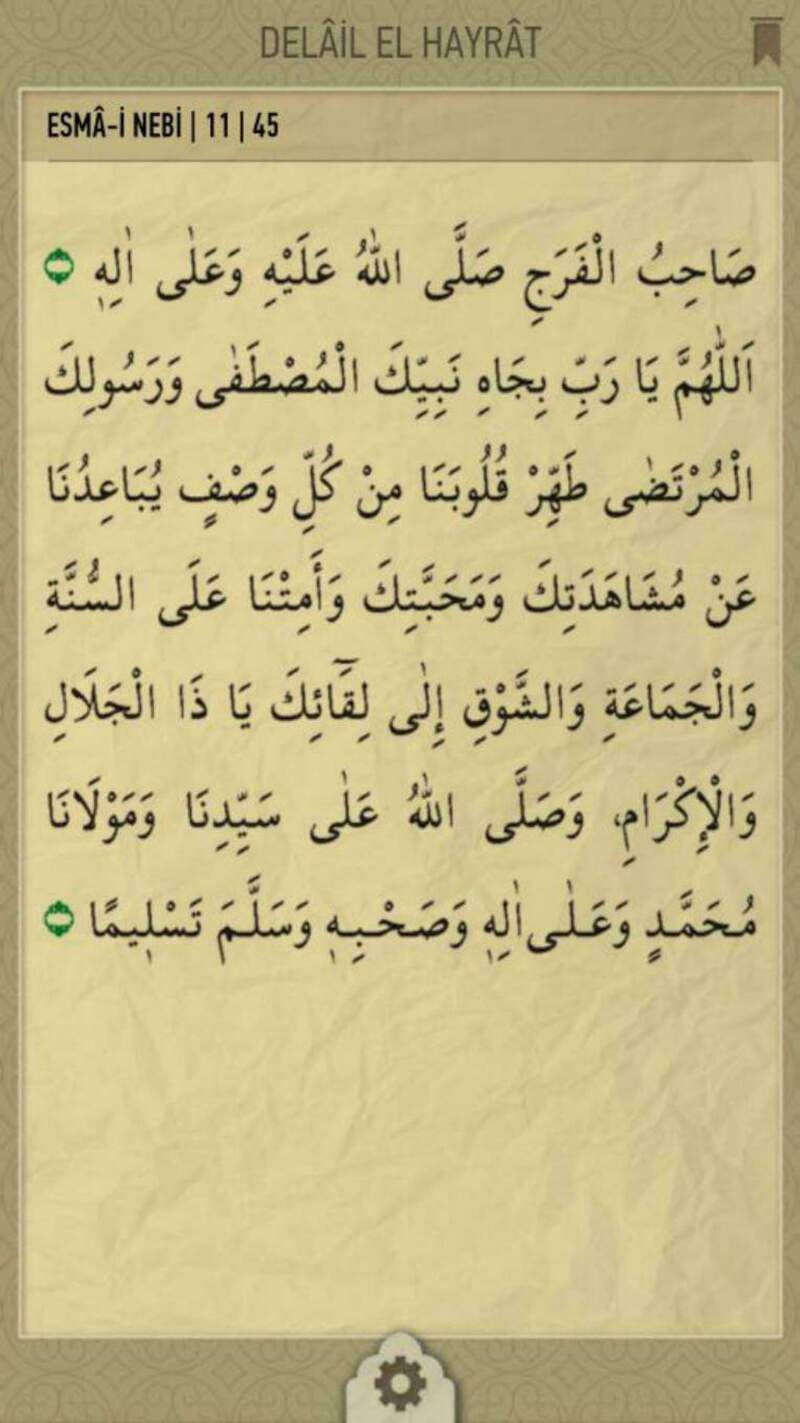 DELÂİL EL HAYRÂT
ESMÂ-İ NEBİ | 11 | 45
صَاحِبُ الْفَرَجِ صَلَّى اللّٰهُ عَلَيْهِ وَعَلٰى اٰلِهٖ
اَللّٰهُمَّ يَا رَبِّ بِجَاهِ نَبِيِّكَ الْمُصْطَفٰى وَرَسُولِكَ
الْمُرْتَضٰى طَهِّرْ قُلُوبَنَا مِنْ كُلِّ وَصْفٍ يُبَاعِدُنَا
عَنْ مُشَاهَدَتِكَ وَمَحَبَّتِكَ وَأَمِتْنَا عَلَى السُّنَّةِ
وَالْجَمَاعَةِ وَالشَّوْقِ إِلٰى لِقَٓائِكَ يَا ذَا الْجَلَالِ
وَالْإِكْرَامِ، وَصَلَّى اللّٰهُ عَلٰى سَيِّدِنَا وَمَوْلَانَا
مُحَمَّدٍ وَعَلٰى اٰلِهٖ وَصَحْبِهٖ وَسَلَّمَ تَسْلِيمًا